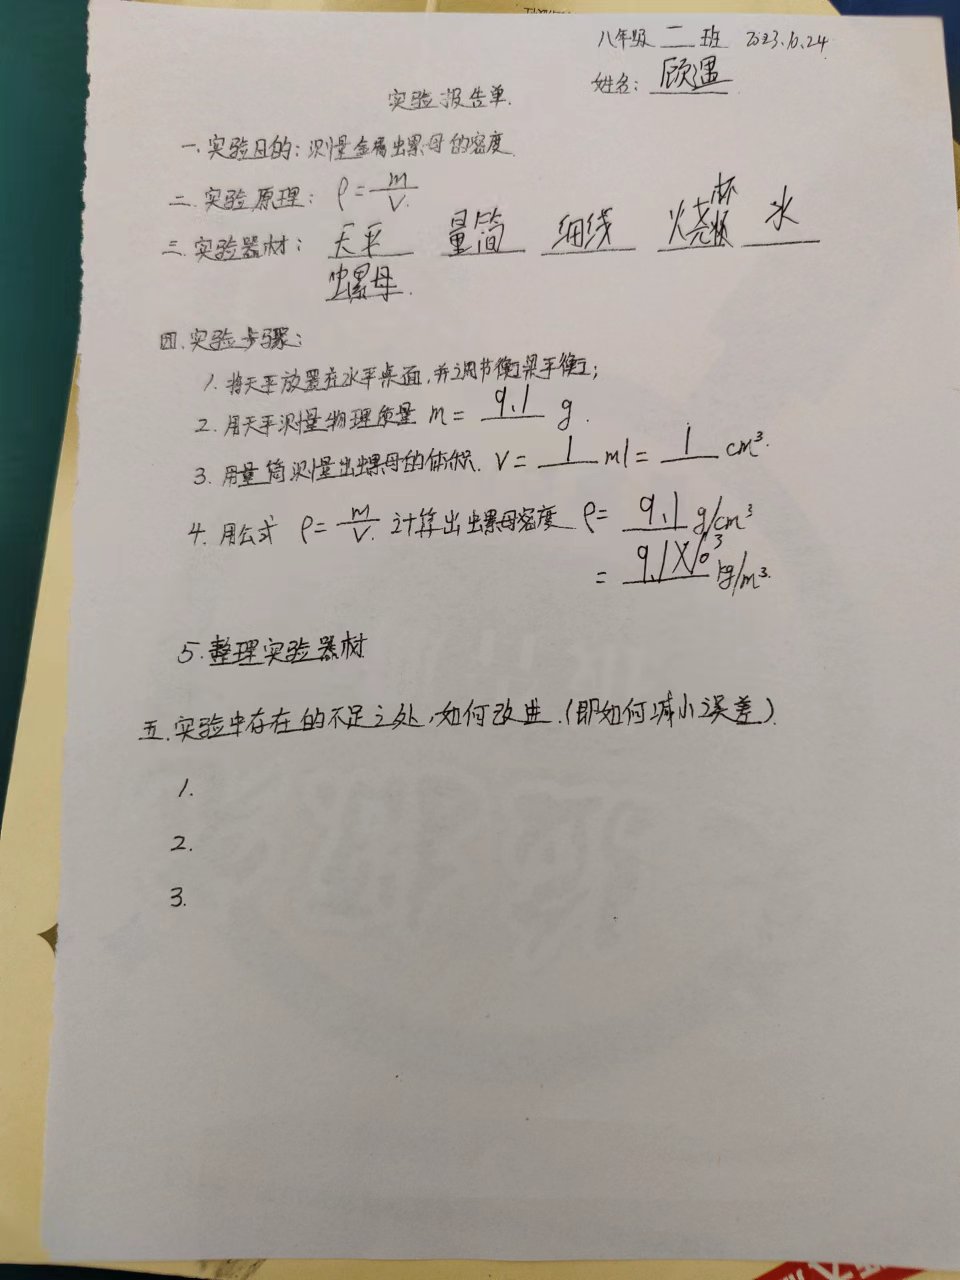 八年级 二 班 2023.10.24
姓名: 顾遇
实验报告单.
一.实验目的:测量金属螺母的密度.
二.实验原理: ρ=m/V.
三.实验器材: 天平 量筒 细线 烧杯 水
螺母.
四.实验步骤:
1.将天平放置在水平桌面,并调节衡梁平衡;
2.用天平测量物理质量 m= 9.1 g.
3.用量筒测量出螺母的体积. V= 1 ml= 1 cm³.
4.用公式 ρ=m/V.计算出螺母密度 ρ= 9.1 g/cm³
= 9.1X10³ kg/m³.
5.整理实验器材
五.实验中存在的不足之处,如何改进.(即如何减小误差).
1.
2.
3.